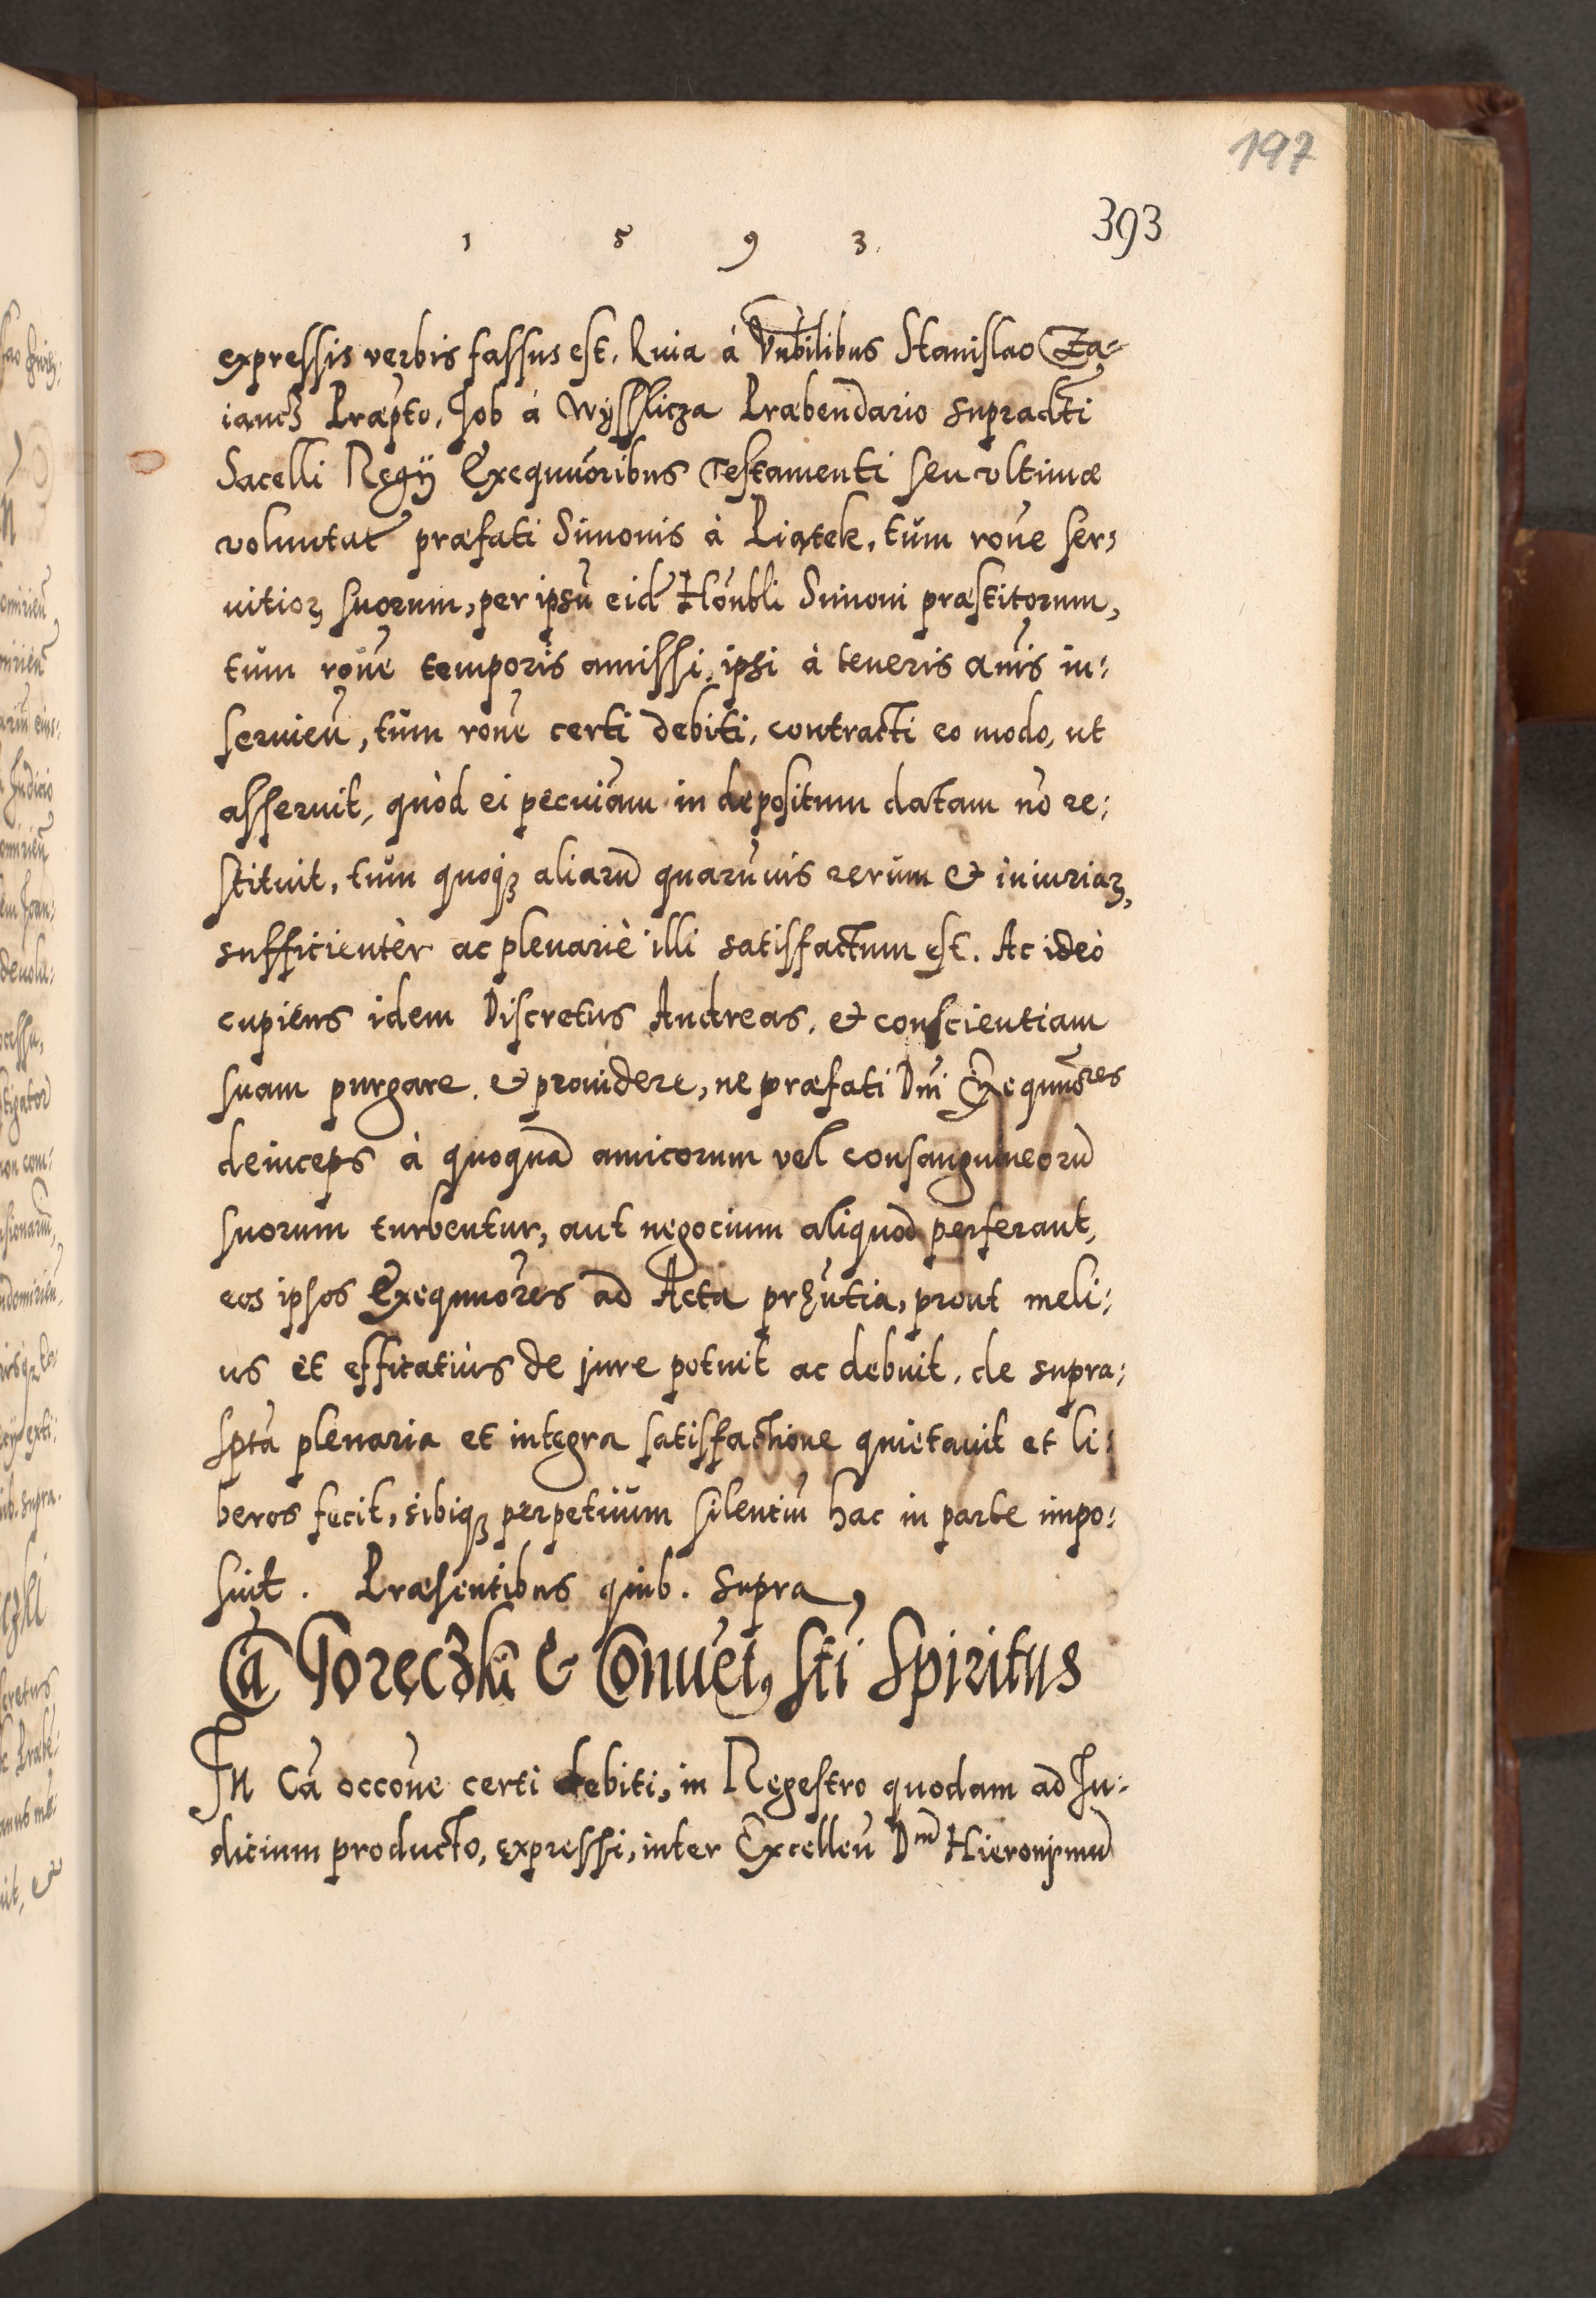 197
393
1 5 9 3.
expressis verbis fassus est. Quia à Vnbilibus Stanislao Za-
iancz Præpto, Job à Wyssliцza Præbendario supradcti
Sacelli Regij Exequutoribus Testamenti seu vltimæ
voluntat præfati Simonis à Piątek, tùm rone ser:
uitior suorum, per ipsu eid Honbli Simoni præstitorum,
tùm rone temporis amissi, ipsi à teneris anis in:
seruien, tùm rone certi debiti, contracti eo modo, ut
asseruit, quòd ei pecuniam in depositum datam no re:
stituit, tùm quoq aliaru quaruuis rerum & iniuriar,
sufficientèr ac plenariè illi satisfactum est. Ac ideò
cupiens idem Discretus Andreas, & conscientiam
suam purgare, & prouidere, ne præfati Dni Exequutores
deinceps à quoqua amicorum vel consanguineoru
suorum turbentur, aut negocium aliquod perferant,
eos ipsos Exequutores ad Acta prhntia, prout meli:
us et efficatiùs de jure potuit ac debuit, de supra:
spta plenaria et integra satisfactione quietauit et li:
beros fecit, sibiq perpetuum silentiu hac in parte impo:
suit. Præsentibus quib. supra,
Ca Goreczki & Conuet, sti Spiritus
In Ca occone certi debiti, in Regestro quodam ad Ju:
dicium producto, expressi, inter Excellen Dm Hieronimu